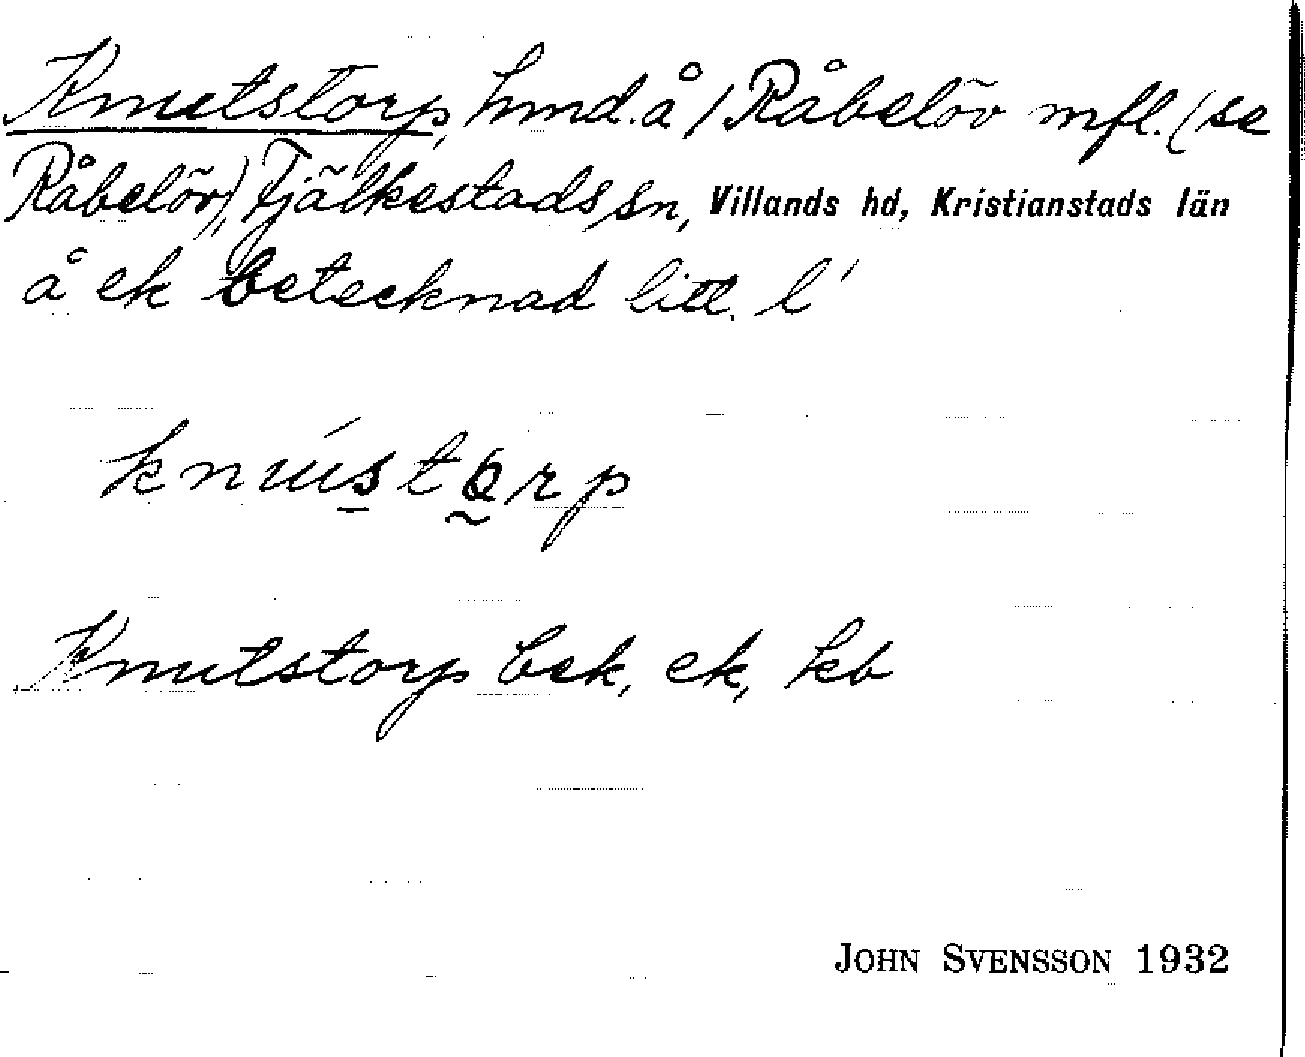 Knutstorp, hmd. å / Råbelöv mfl. (se
Råbelöv), Fjälkestads sn, Villands hd, Kristianstads län
å ek betecknad litt. l'
knu̇́stọrp
Knutstorp bek, ek, kb
JOHN SVENSSON 1932